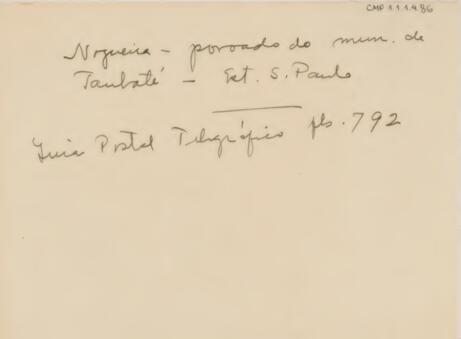 CMP 1.1.1.4.86
Nogueira - povoado do mun. de
Taubaté - Est. S. Paulo
Guia Postal Telegráfico fls. 792